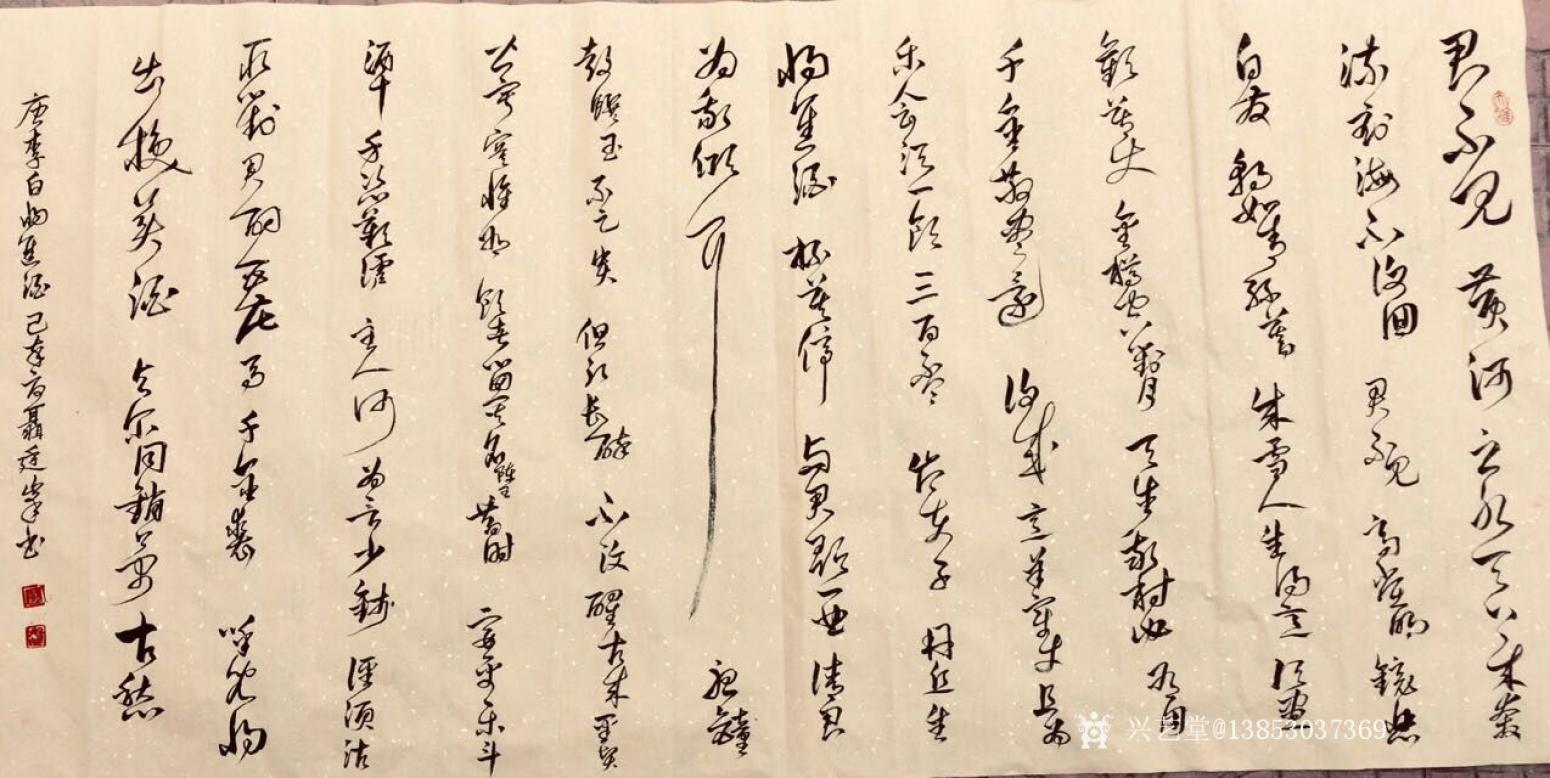 君不见黄河之水天上来奔
流到海不復回君不见高堂明镜悲
白发朝如青丝暮成雪人生得意须尽
歡莫使金樽空對月天生我材必有用
千金散盡還復来烹羊宰牛且为
乐会须一饮三百杯岑夫子丹丘生
将進酒杯莫停与君歌一曲请君
为我倾耳听鐘
鼓饌玉不足贵但愿长醉不復醒古来圣贤
皆寂寞惟有饮者留其名陳王昔时宴平乐斗
酒十千恣歡謔主人何为言少钱徑须沽
取對君酌五花马千金裘呼儿将
出换美酒与尔同销万古愁
唐李白将進酒己亥聶廷书
兴艺堂@13853037369